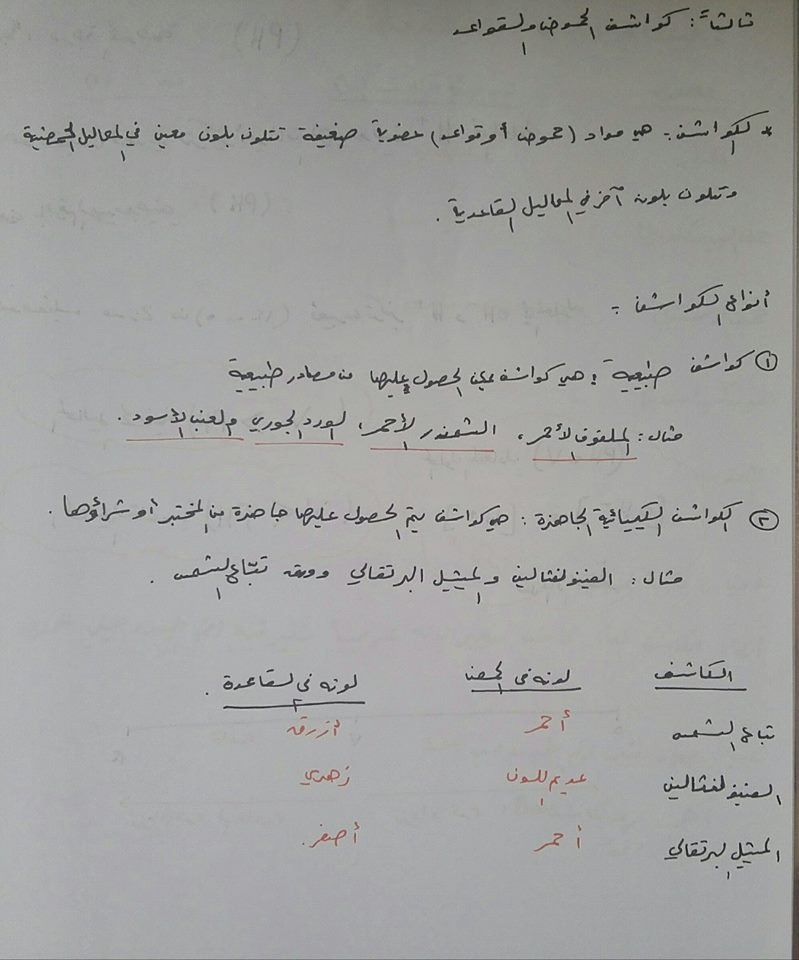 ثالثاً: كواشف الحموض والقواعد
* الكواشف: هي مواد (حموض أو قواعد) عضوية ضعيفة تتلون بلون معين في المحاليل الحمضية
وتتلون بلون آخر في المحاليل القاعدية .
أنواع الكواشف :
① كواشف طبيعية : هي كواشف يمكن الحصول عليها من مصادر طبيعية
مثال: الملفوف الأحمر، الشمندر الأحمر، الورد الجوري والعنب الأسود .
② الكواشف الكيميائية الجاهزة : هي كواشف يتم الحصول عليها جاهزة من المختبر أو شراؤها .
مثال : الفينولفثالين والميثيل البرتقالي وورقة تبّاع الشمس .
الكاشف لونه في الحمض لونه في القاعدة .
تباع الشمس أحمر أزرق
الفينولفثالين عديم اللون زهري
الميثيل البرتقالي أحمر أصفر .